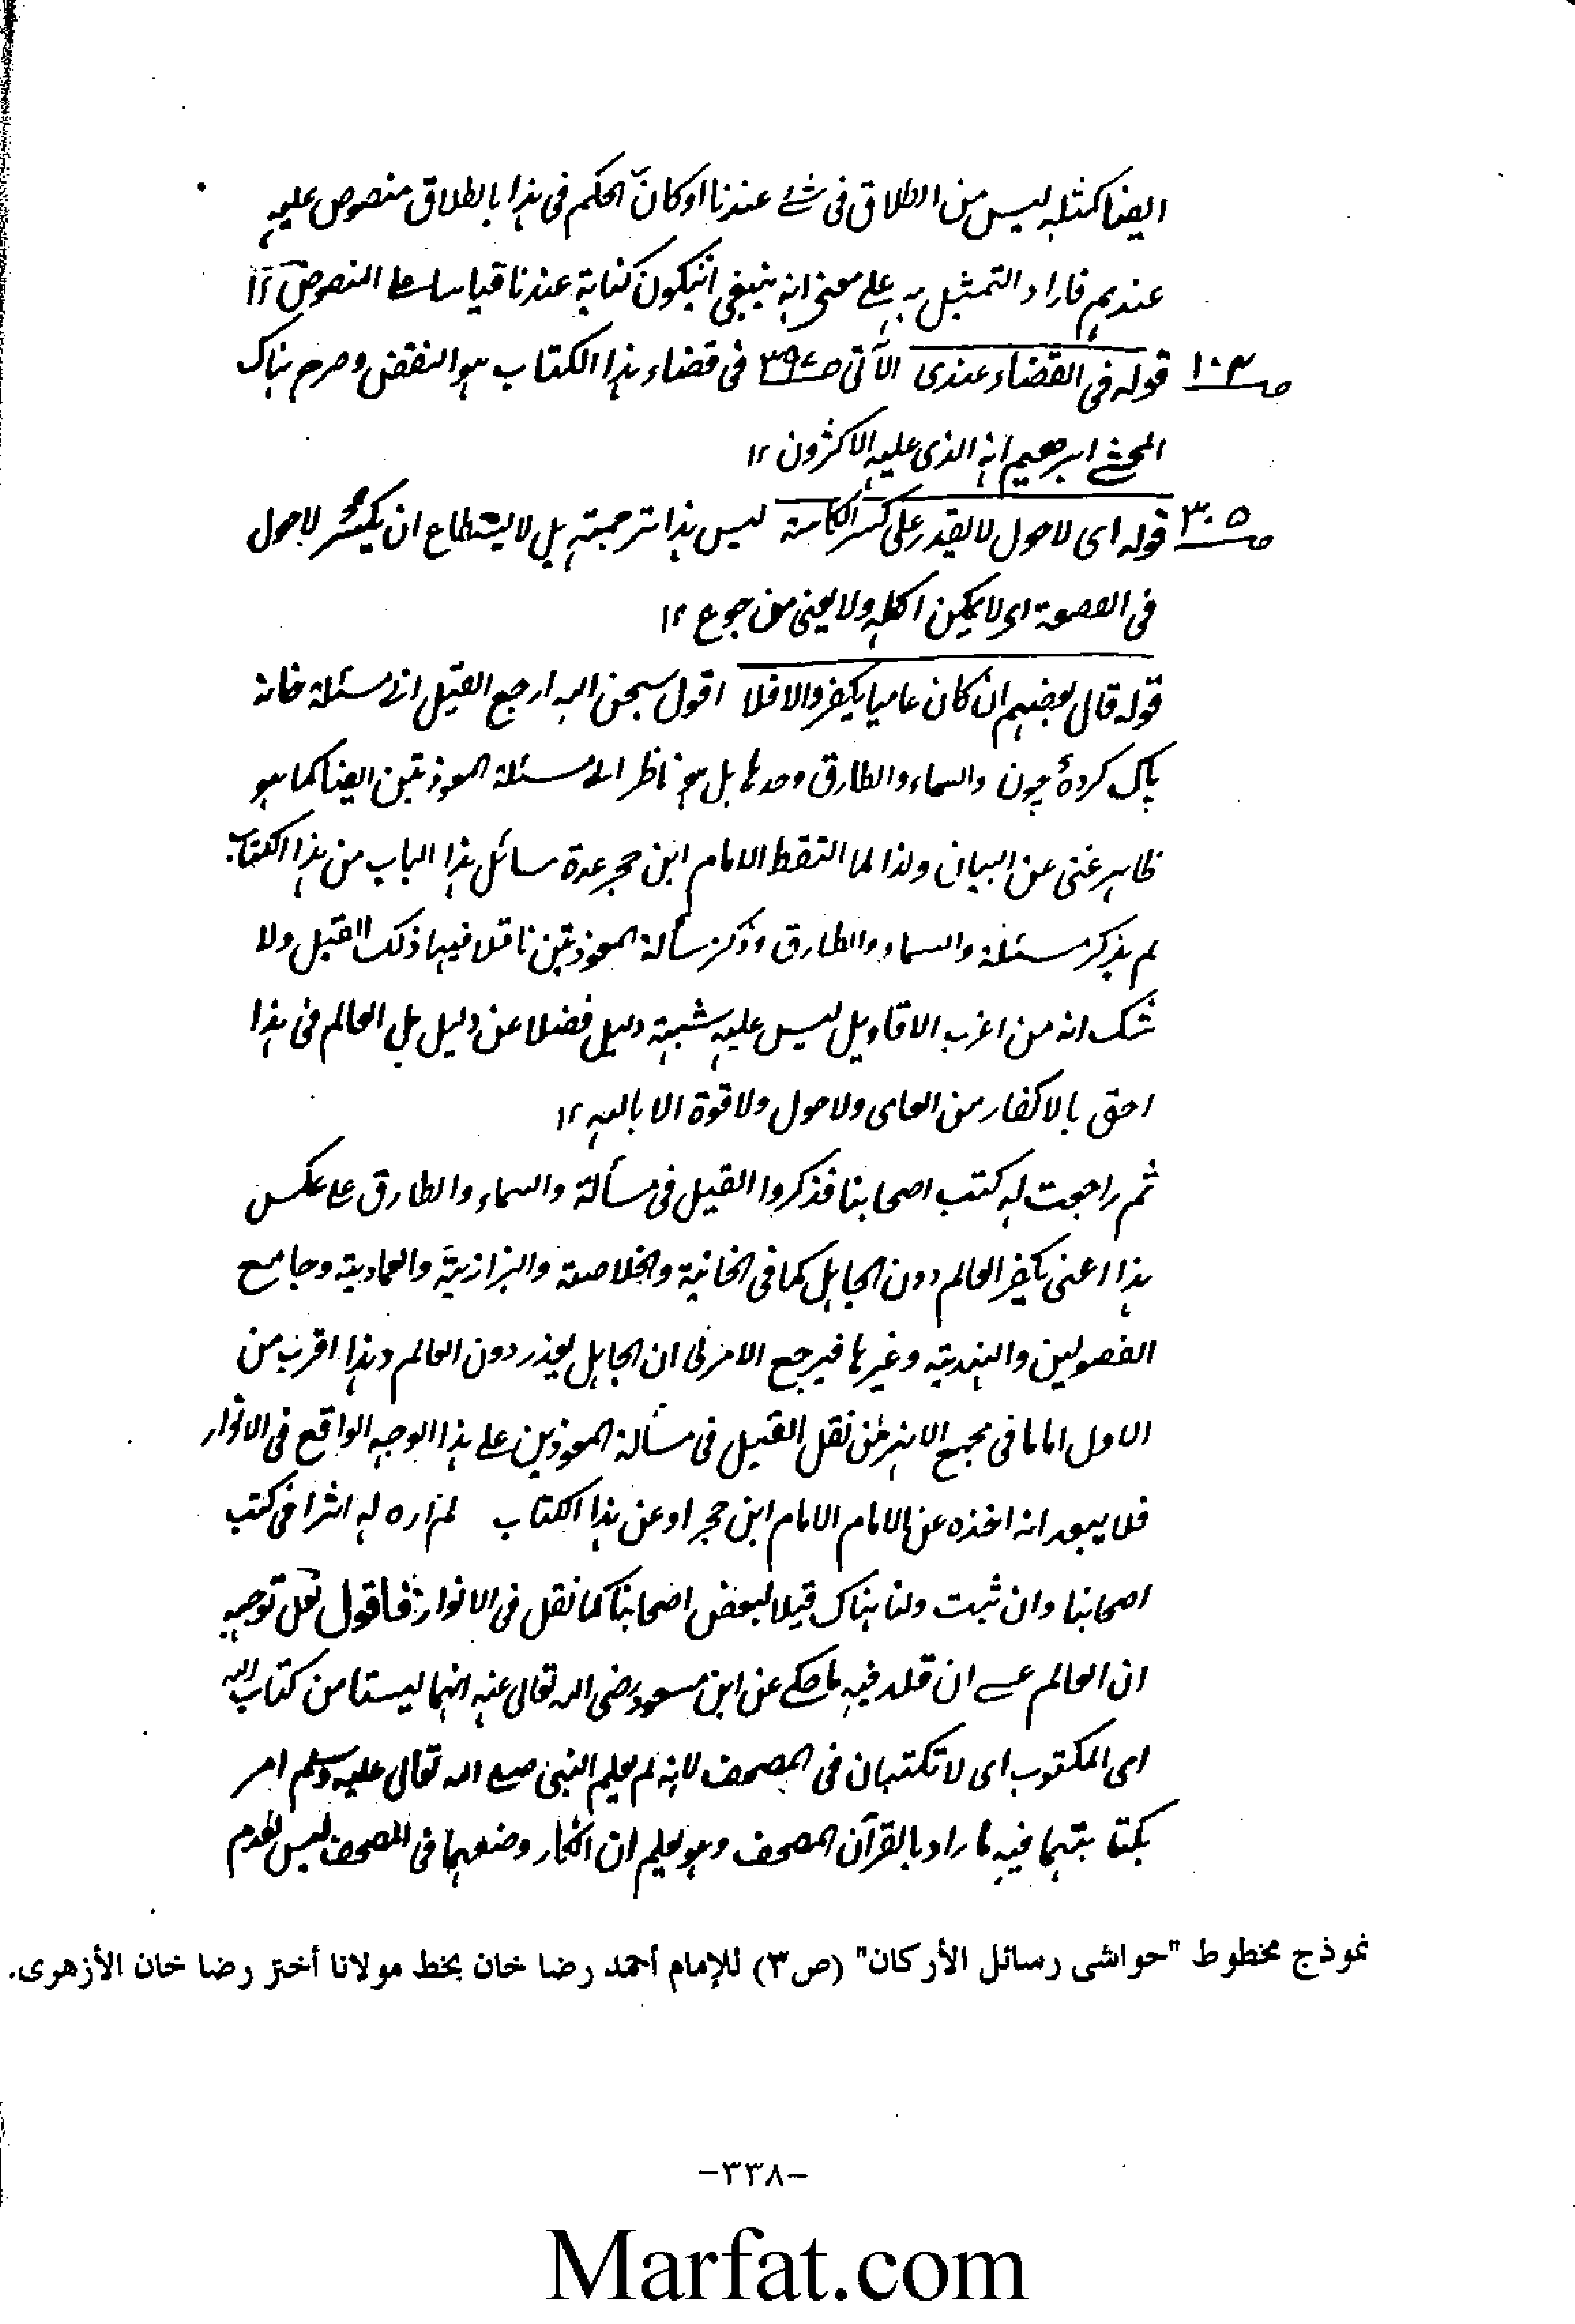 ايضا كمثله ليس من الطلاق فى شئ عندنا او كان الحكم فى هذا بالطلاق منصوص عليه
عندهم فاراد التمثيل به على معنى انه ينبغى ان يكون كناية عندنا قياسا على المنصوص ١٢
قوله فى القضاء عندى الآتى ص٣٩٧ فى قضاء هذا الكتاب هو النقض وصرح هناك
المحشى ابرهيم انه الذى عليه الاكثرون ١٢
ص٣٠٥ قوله اى لاحول لا يقدر على كسر الكاسة ليس هذا ترجمته بل لا يستطاع ان يكسر لاحول
فى القصعة اى لا يمكن اكله ولا يغنى من جوع ١٢
قوله قال بعضهم ان كان عاميا يكفر والا فلا اقول سبحن الله ارجع القيل الى مسئلة خانه
پاک کردۂ چون والسماء والطارق وحدها بل هو ناظر الى مسئلة المعوذتين ايضا كما هو
ظاهر غنى عن البيان ولذا لما التقط الامام ابن حجر عدة مسائل هذا الباب من هذا الكتاب
لم يذكر مسئلة والسماء والطارق وذكر مسألة المعوذتين ناقلا فيها ذلك القيل ولا
شك انه من اغرب الاقاويل ليس عليه شبهة دليل فضلا عن دليل بل العالم فى هذا
احق بالاكفار من العامى ولاحول ولا قوة الا بالله ١٢
ثم راجعت له كتب اصحابنا فذكروا القيل فى مسألة والسماء والطارق على عكس
هذا اعنى يكفر العالم دون الجاهل كما فى الخانية والخلاصة والبزازية والعمادية وجامع
الفصولين والهندية وغيرها فيرجع الامر الى ان الجاهل يعذر دون العالم وهذا اقرب من
الاول اما ما فى مجمع الانهر من نقل القيل فى مسألة المعوذتين على هذا الوجه الواقع فى الانوار
فلا يبعد انه اخذه عن الامام الامام ابن حجر او عن هذا الكتاب لم اره له اثرا فى كتب
اصحابنا وان ثبت ولنا هناك قيلا لبعض اصحابنا كما نقل فى الانوار فاقول لعل توجيهه
ان العالم عسى ان قلد فيه ما حكى عن ابن مسعود رضى الله تعالى عنه انهما ليستا من كتاب الله
اى المكتوب اى لا تكتبان فى المصحف لانه لم يعلم النبى صلى الله تعالى عليه وسلم امر
بكتابتهما فيه فاراد بالقرآن المصحف وهو يعلم ان انكار وضعهما فى المصحف ليس لعدم
نموذج مخطوط "حواشى رسائل الأركان" (ص٣) للإمام أحمد رضا خان بخط مولانا أختر رضا خان الأزهرى.
-٣٣٨-
Marfat.com